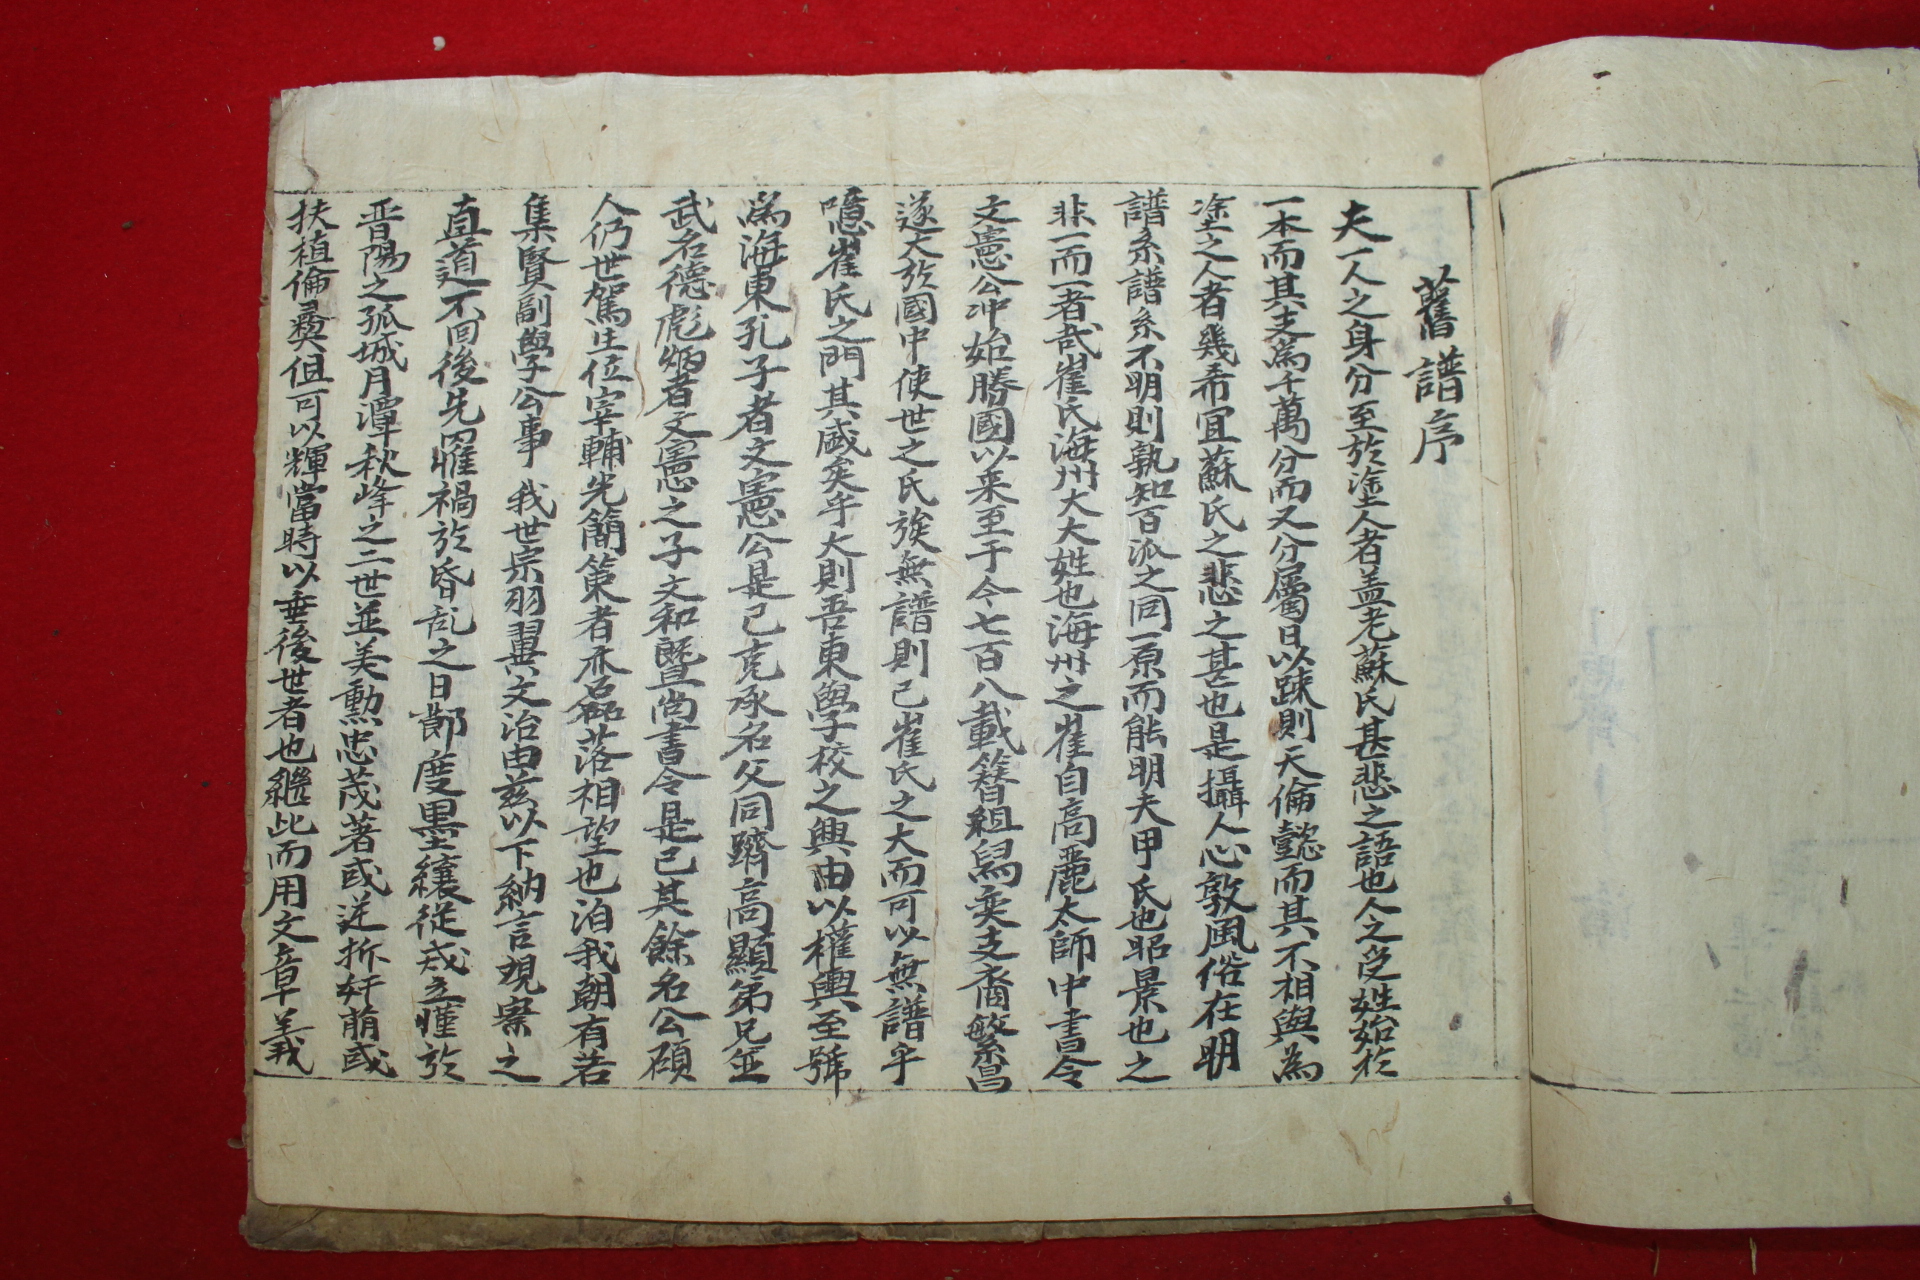 舊譜序
夫一人之身分至於塗人者盖老蘇氏甚悲之語也人之受姓始於
一本而其支為千萬分而又分屬日以踈則天倫懿而其不相與為
塗之人者幾希宜蘇氏之悲之甚也是攝人心敦風俗在明
譜系譜系不明則孰知百派之同一原而能明夫甲氏也昭景也之
非一而一者哉崔氏海州大大姓也海州之崔自高麗太師中書令
文憲公冲始勝國以来至于今七百八載簪組舃奕支裔繁昌
遂大於國中使世之氏族無譜則已崔氏之大而可以無譜乎
噫崔氏之門其盛矣乎大則吾東學校之興由以權輿至號
為海東孔子者文憲公是已克承名父同躋高顯弟兄並
武名德彪炳者文憲之子文和曁尚書令是已其餘名公碩
人仍世駕生位宰輔光簡策者亦磊落相望也洎我朝有若
集賢副學子公事 我世宗羽翼文治由玆以下納言觀察之
直道不回後先罹禍於昏乱之日都度墨縗從戎立慬於
晋陽之孤城月潭秋峰之二世並美勳忠茂著或逆折奸萠或
扶植倫彛但可以輝當時以垂後世者也繼此而用文章義